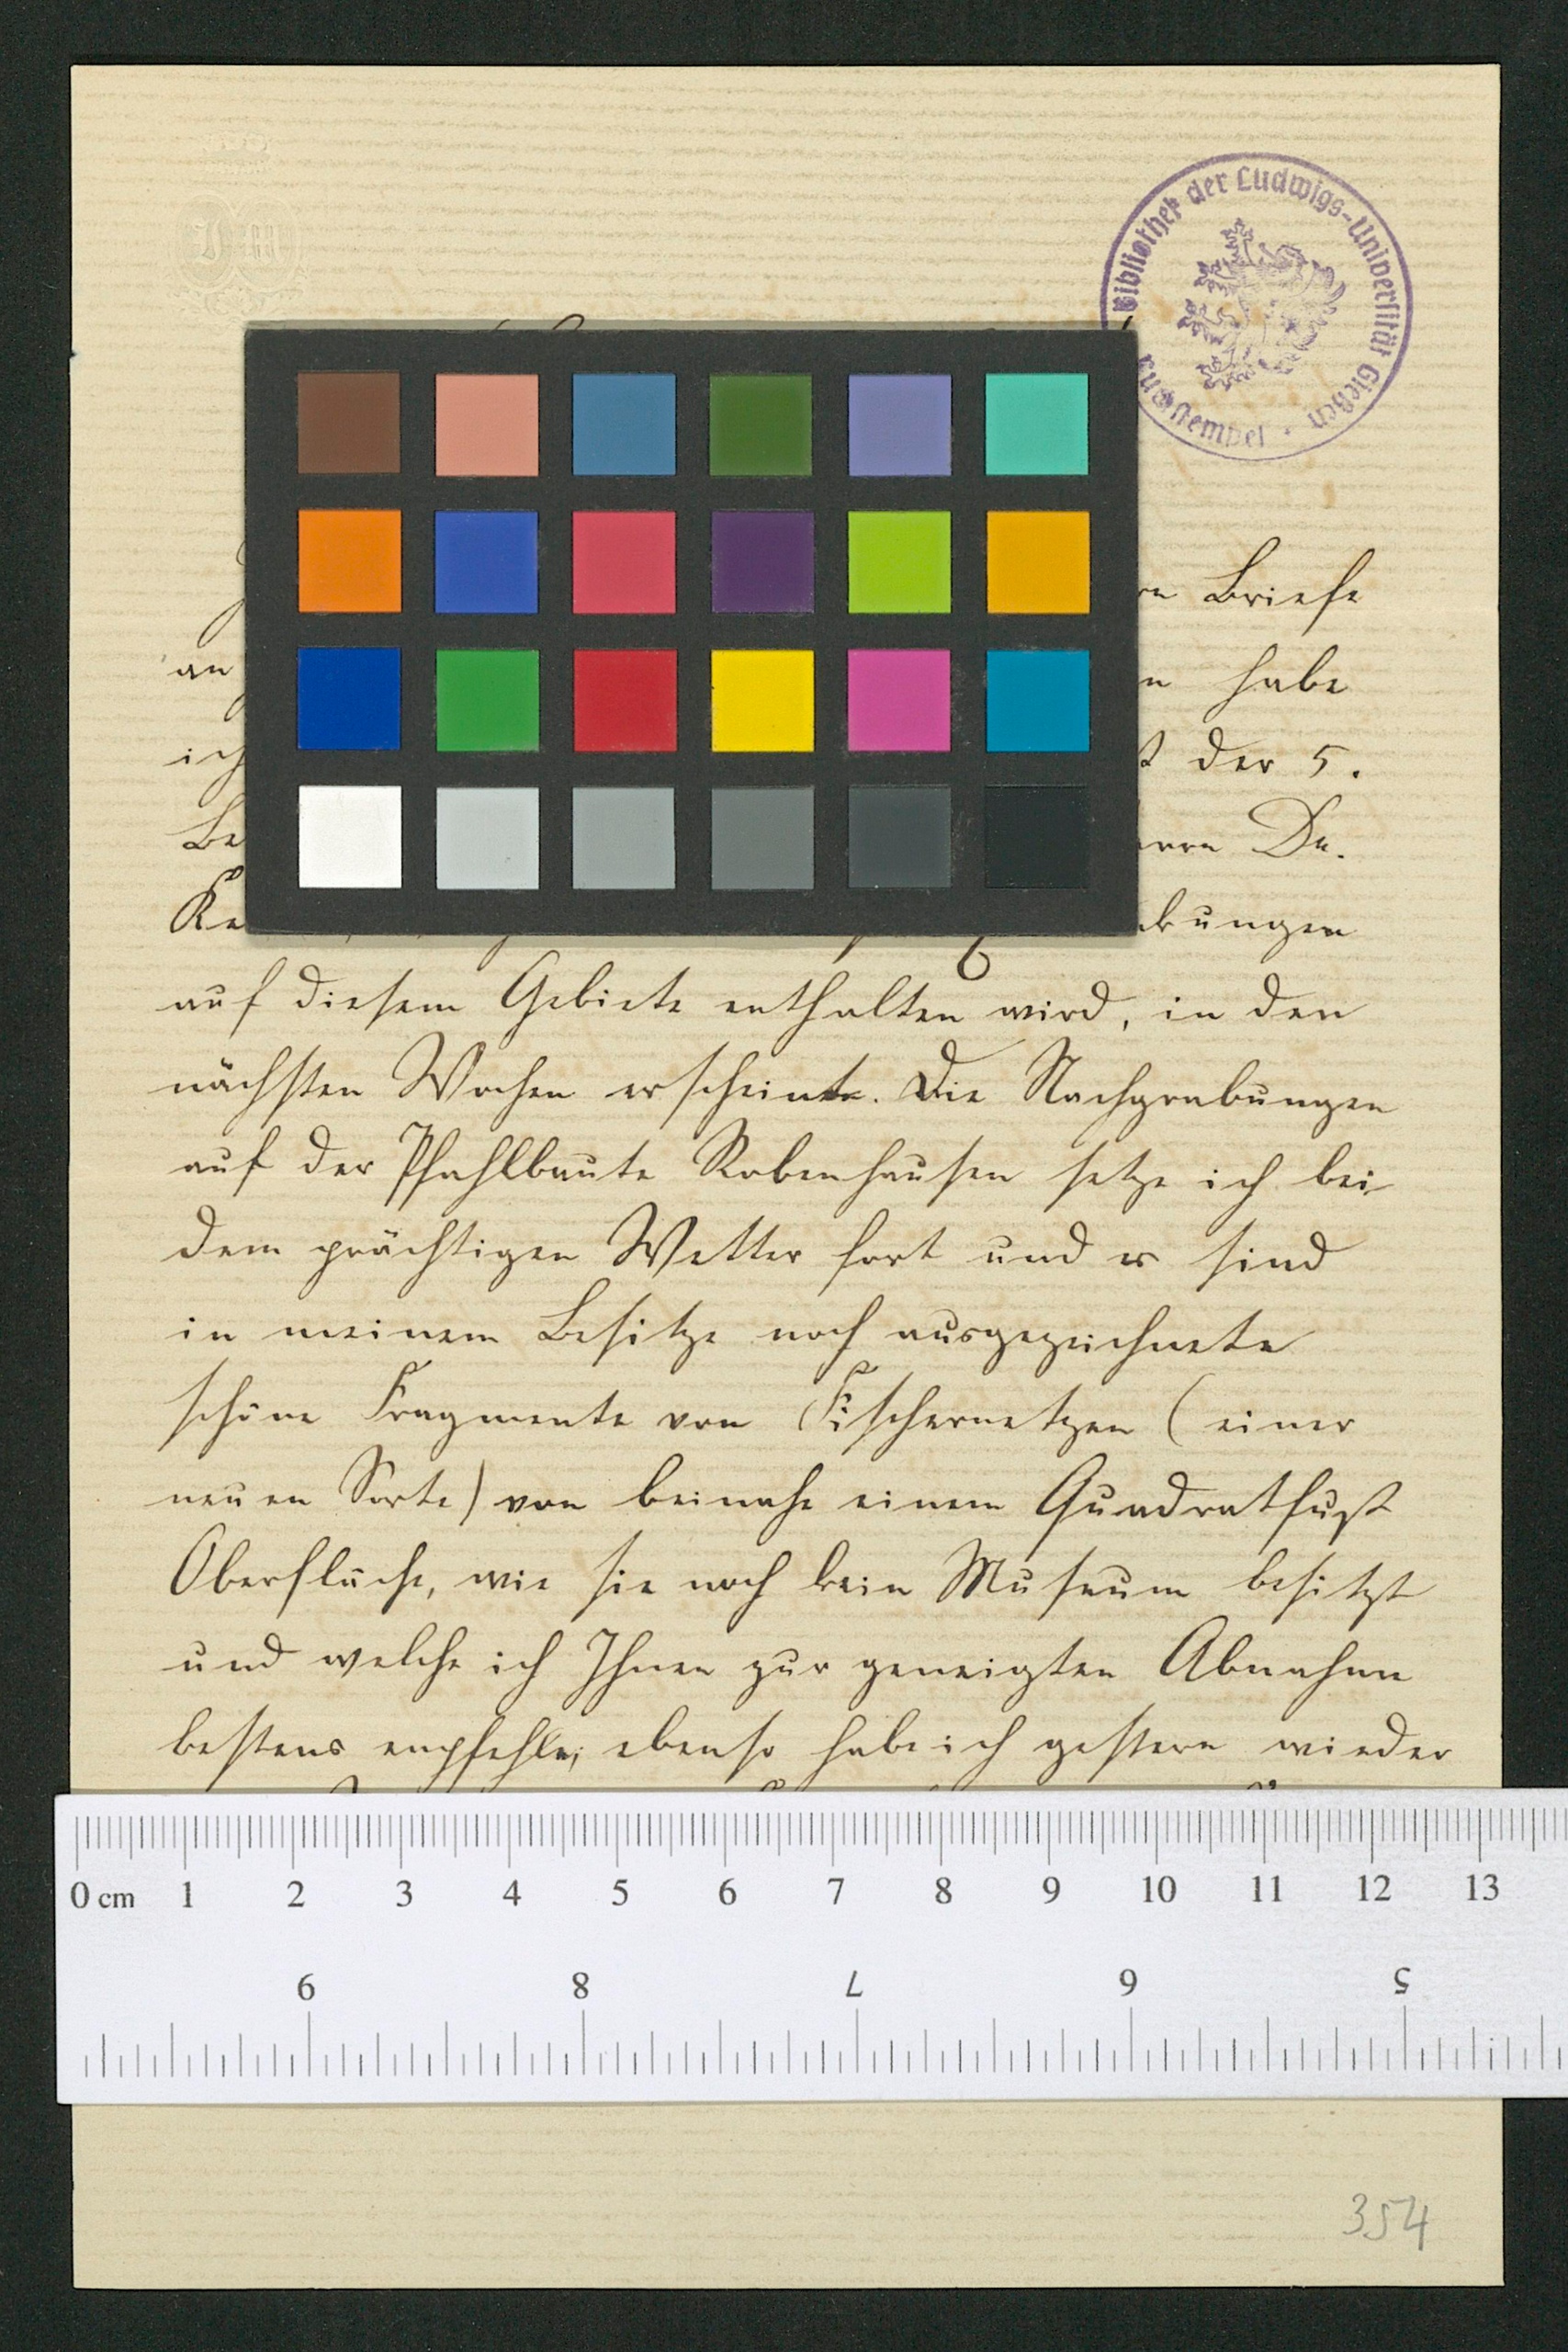 Bibliothek der Ludwigs-Universität Gießen
Buchstempel
Briefe
an habe
ich der 5.
Be Dr.
Ke bungen
auf diesem Gebiete enthalten wird, in den
nächsten Wochen erscheint. Die Nachgrabungen
auf der Pfahlbaute Robenhausen setze ich bei
dem prächtigen Wetter fort und es sind
in meinem Besitze noch ausgezeichnete
schöne Fragmente von Fischernetzen (einer
neuen Sorte) von beinahe einem Quadratfuß
Oberfläche, wie sie noch kein Museum besitzt
und welche ich Ihnen zur geneigten Abnahme
bestens empfehle; ebenso habe ich gestern wieder
0 cm 1 2 3 4 5 6 7 8 9 10 11 12 13
9 8 7 6 5
354